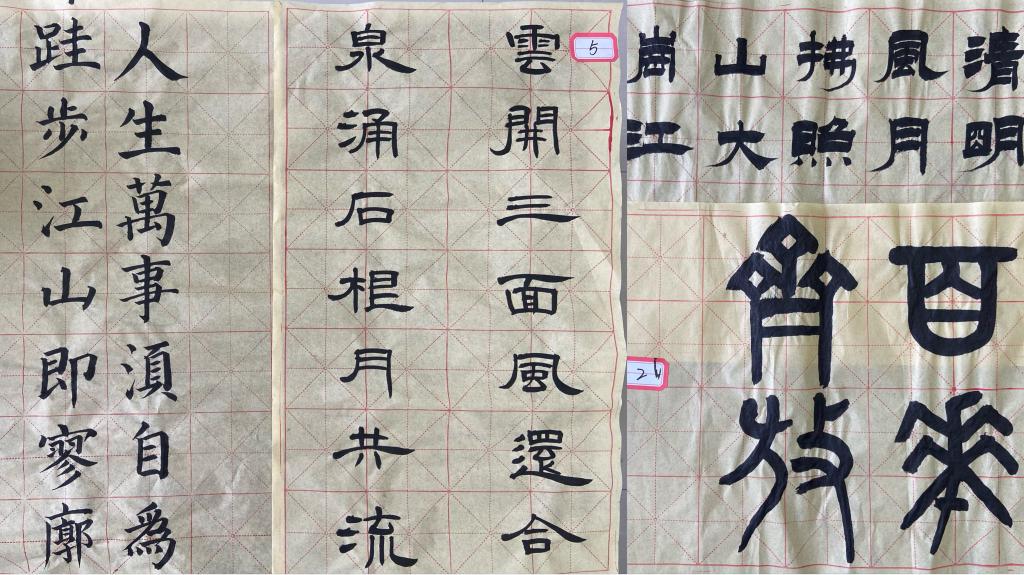 人生萬事湏自為
跬步江山即寥廓
5
雲開三面風還合
泉涌石根月共流
清風拂山崗
明月照大江
百華
齊放